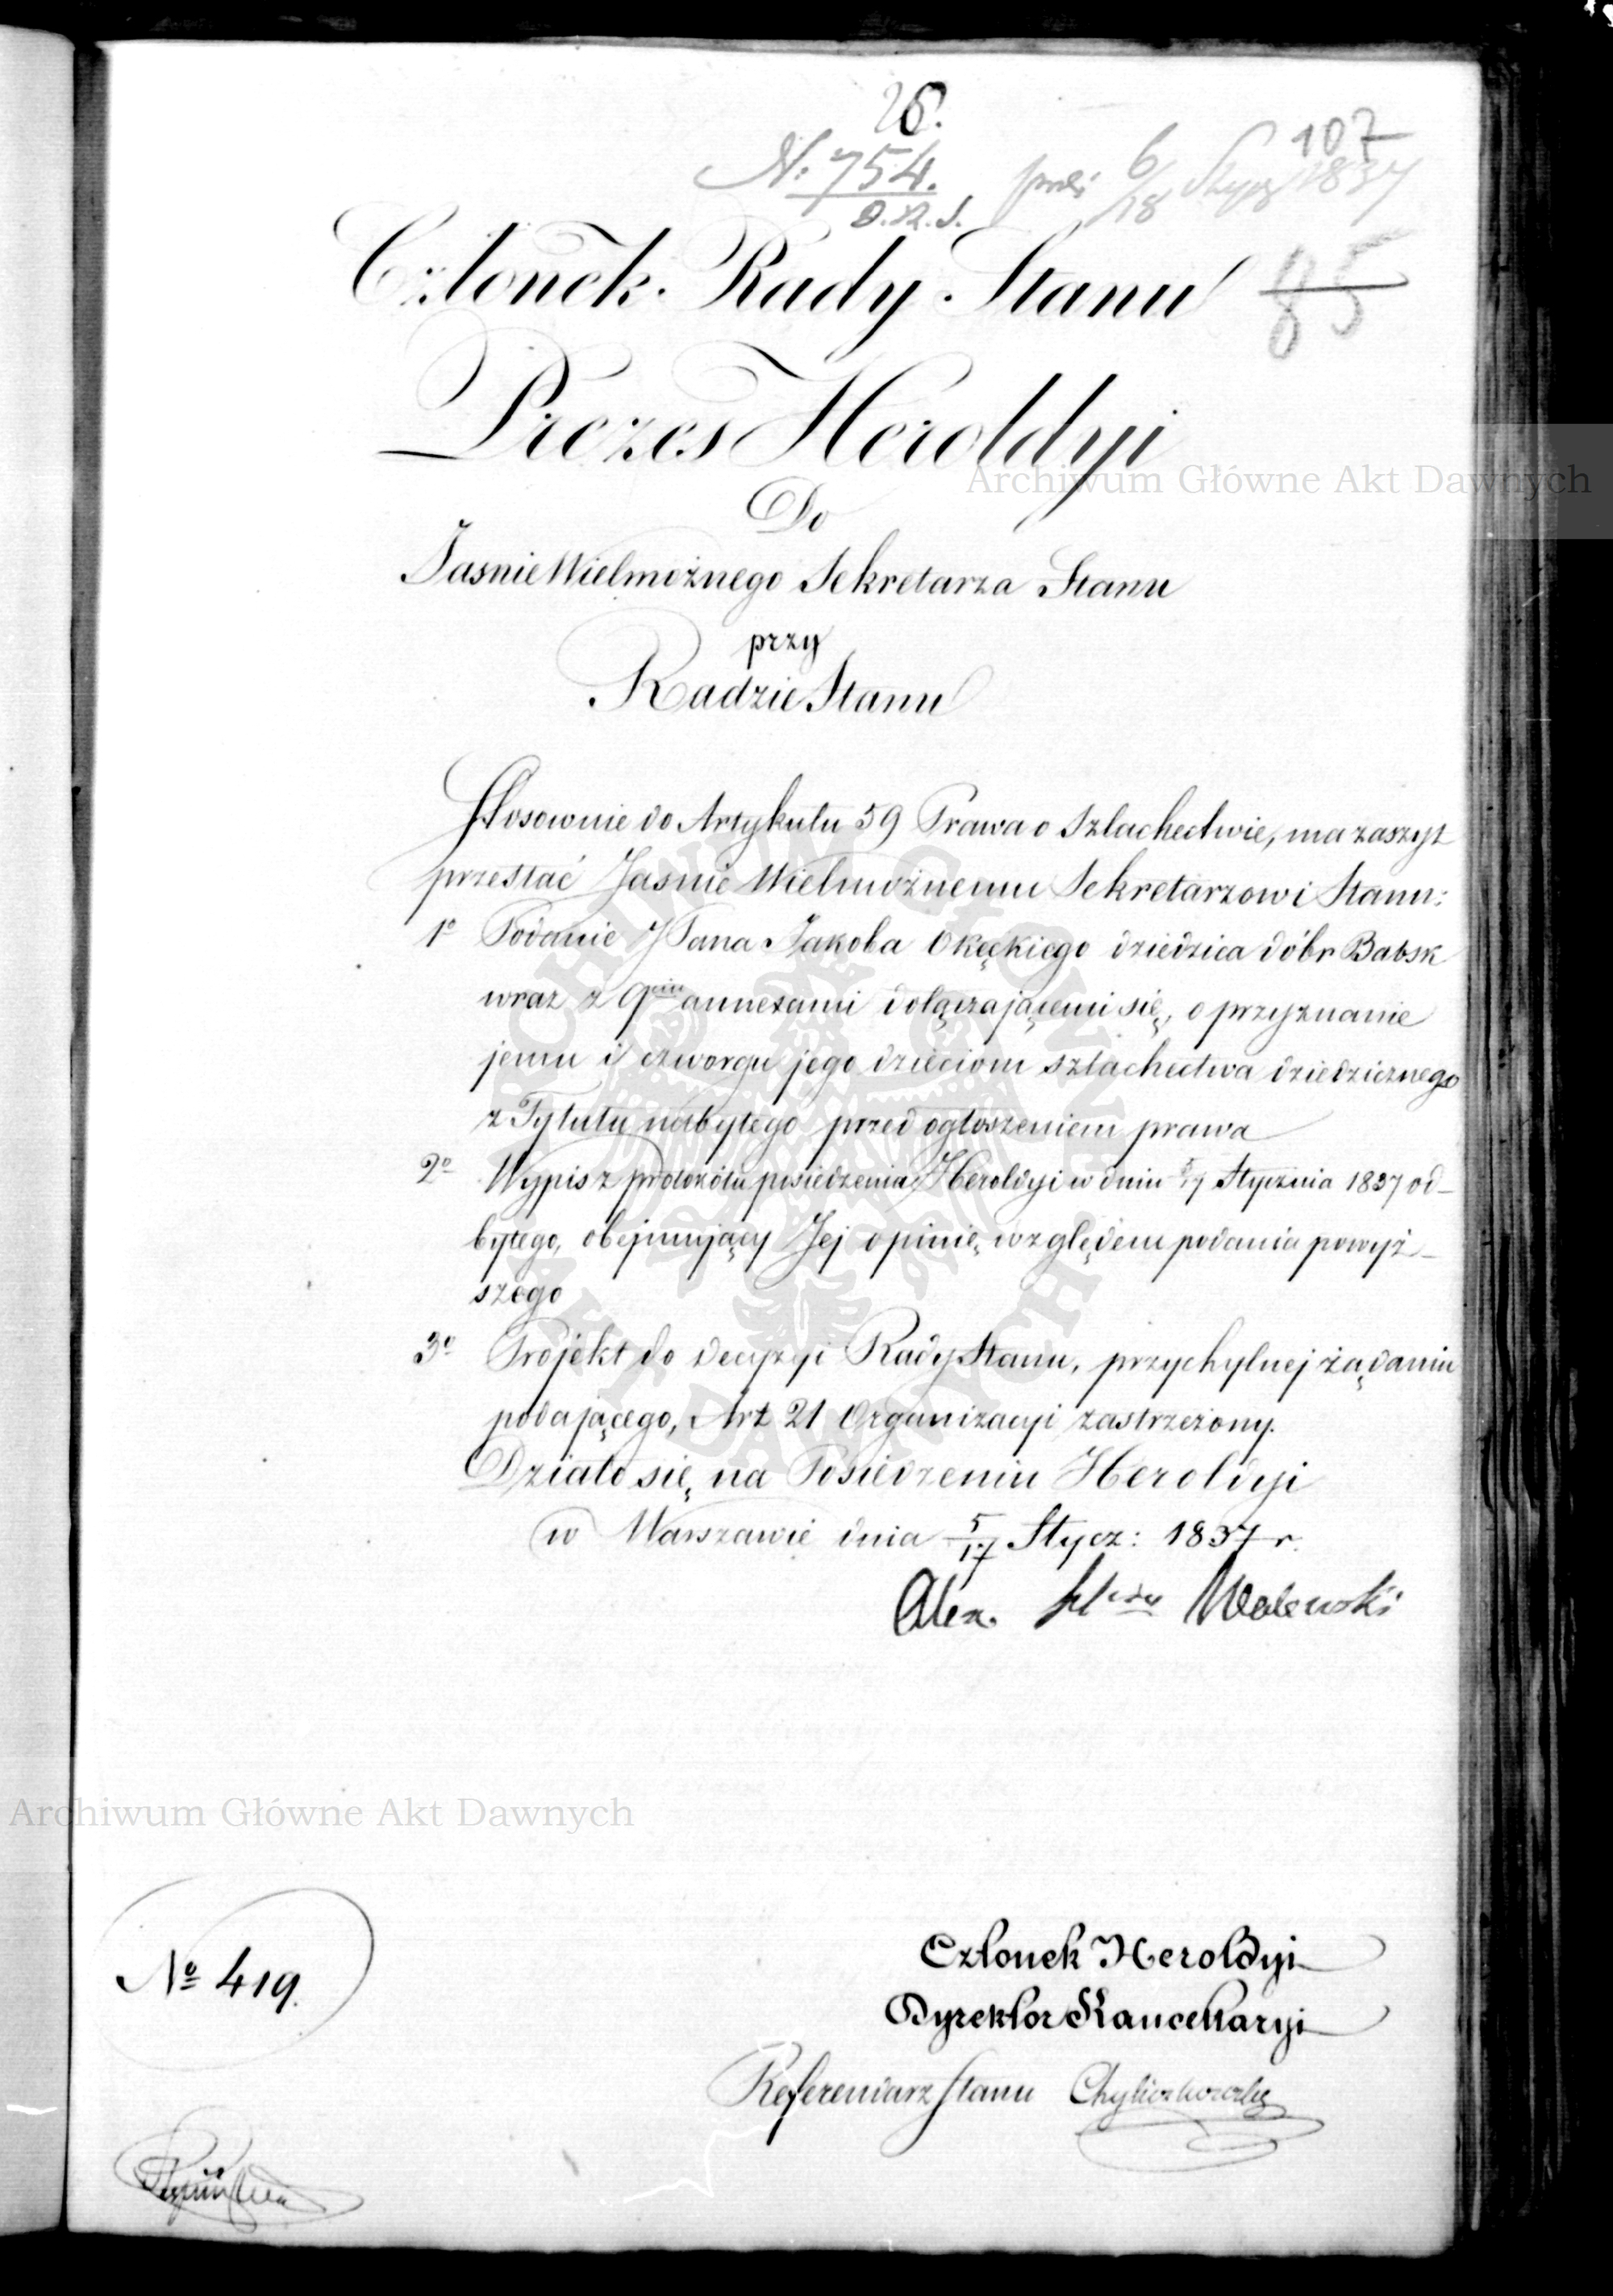 26.
107
N. 754. 6/18 1837
D.R.S.
85
Członek Rady Stanu
Prezes Heroldyi
Do
JaśnieWielmożnego Sekretarza Stanu
przy
Radzie Stanu
Stosownie do Artykułu 59 Prawa o Szlachectwie, ma zaszzyt
przesłać Jaśnie Wielmożnemu Sekretarzowi Stanu:
1o Podanie JPana Jakóba Okęckiego dziedzica dóbr Babsk
wraz z 9ciu annexami dołączającemi się, o przyznanie
jemu i czworgu jego dzieciom szlachectwa dziedzicznego
z Tytułu nabytego przed ogłoszeniem prawa
2o Wypis z protokółu posiedzenia Heroldyi w dniu 5/17 Stycznia 1837 od-
bytego, obejmujący Jej opinię względem podania powyż-
szego
3o Projekt do decyzyi Rady Stanu, przychylnej żądaniu
podającego, Art 21 Organizacyi zastrzeżony.
Działo się na Posiedzeniu Heroldyi
w Warszawie dnia 5/17 Stycz: 1837 r.
Alex. Walewski
Członek Heroldyi
Dyrektor Kancellaryi
Referendarz Stanu
No 419.
Archiwum Główne Akt Dawnych
Archiwum Główne Akt Dawnych
ARCHIWUM GŁÓWNE
AKT DAWNYCH